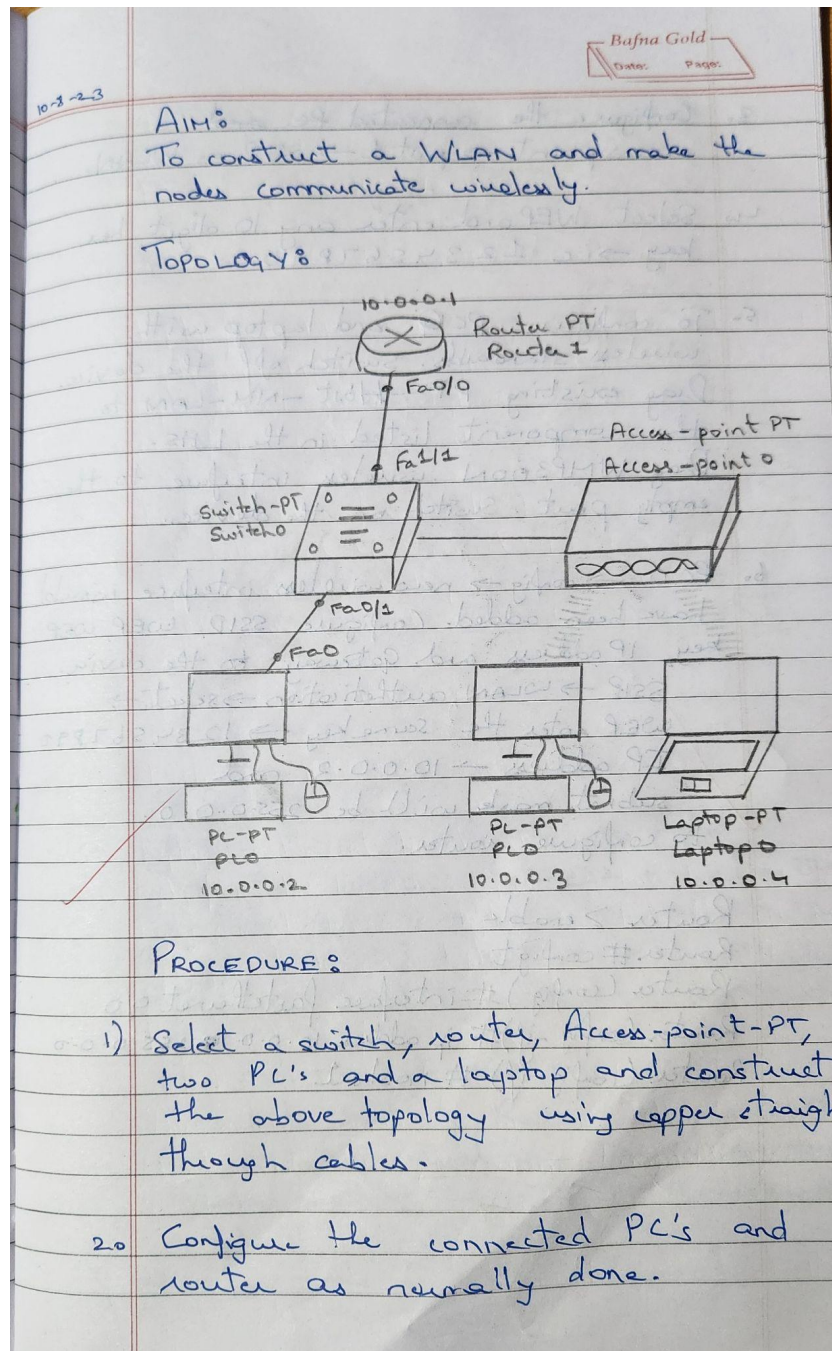 Bafna Gold
Date: Page:
AIM:
To construct a WLAN and make the
nodes communicate wirelessly.
TOPOLOGY:
10.0.0.1
Router PT
Router 1
Fa0/0
Fa1/1
Access-point PT
Access-point 0
Switch-PT
Switch0
Fa0/1
Fa0
PC-PT
PC0
10.0.0.2
PC-PT
PC0
10.0.0.3
Laptop-PT
Laptop0
10.0.0.4
PROCEDURE:
1) Select a switch, router, Access-point-PT,
two PC's and a laptop and construct
the above topology using copper straigh
through cables.
2. Configure the connected PC's and
router as normally done.